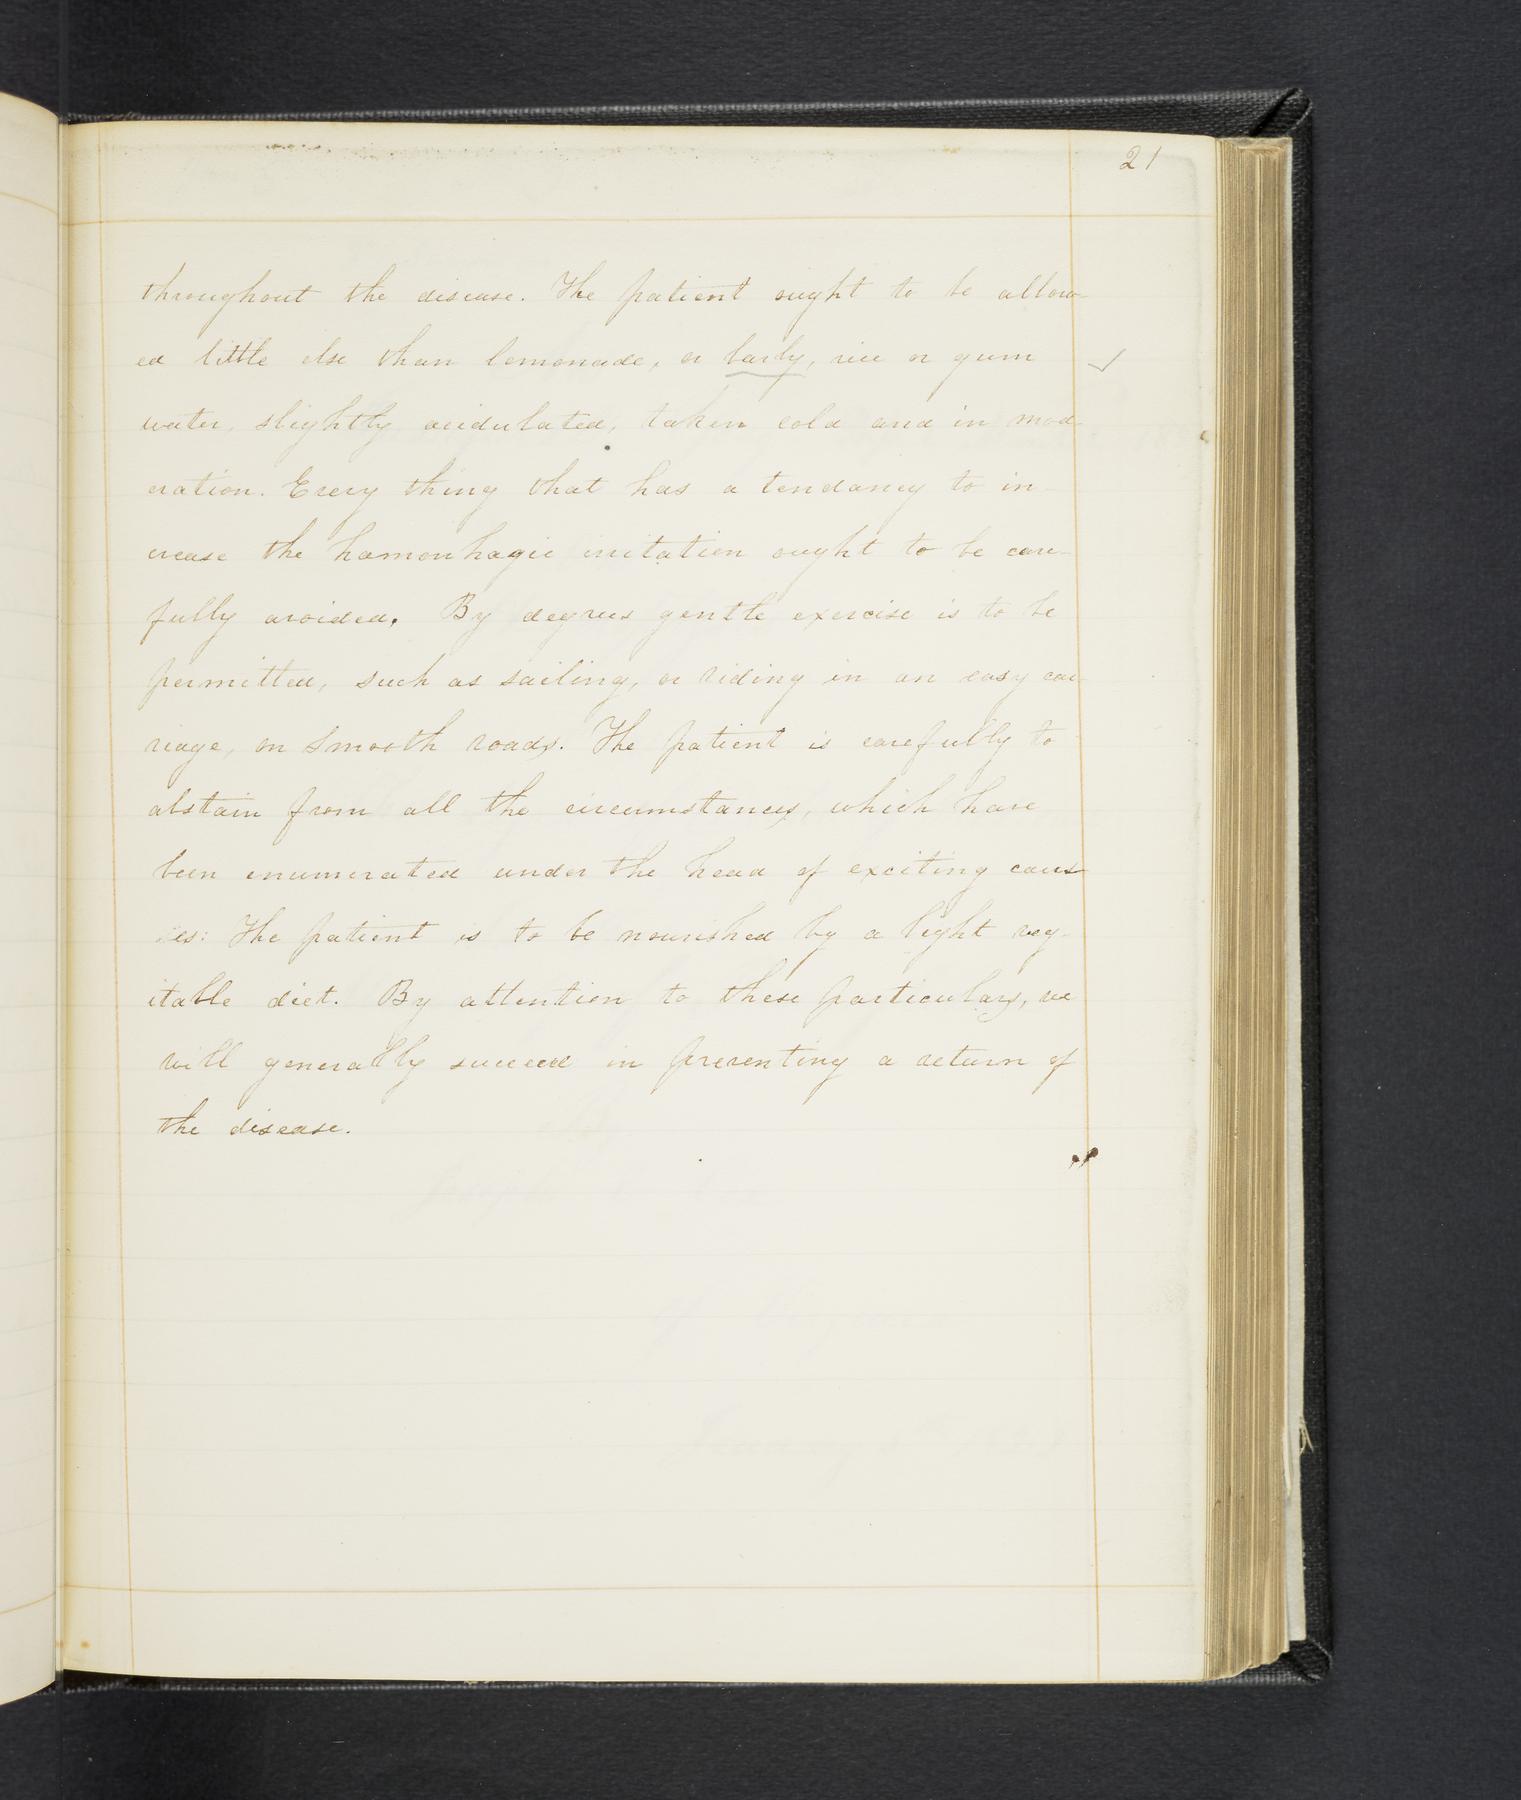 21
throughout the disease. The patient ought to be allow-
ed little else than lemonade, or barly, rice or gum
water, slightly acidulated, taken cold and in mod-
eration. Every thing that has a tendancy to in-
crease the hamorrhagic irritation ought to be care-
fully avoided. By degrees gentle exercise is to be
permitted, such as sailing, or riding in an easy car-
riage, on smooth roads. The patient is carefully to
abstain from all the circumstances, which have
been enumerated under the head of exciting caus-
es: The patient is to be nourished by a light veg-
itable diet. By attention to these particulars, we
will generally succeed in preventing a return of
the disease.